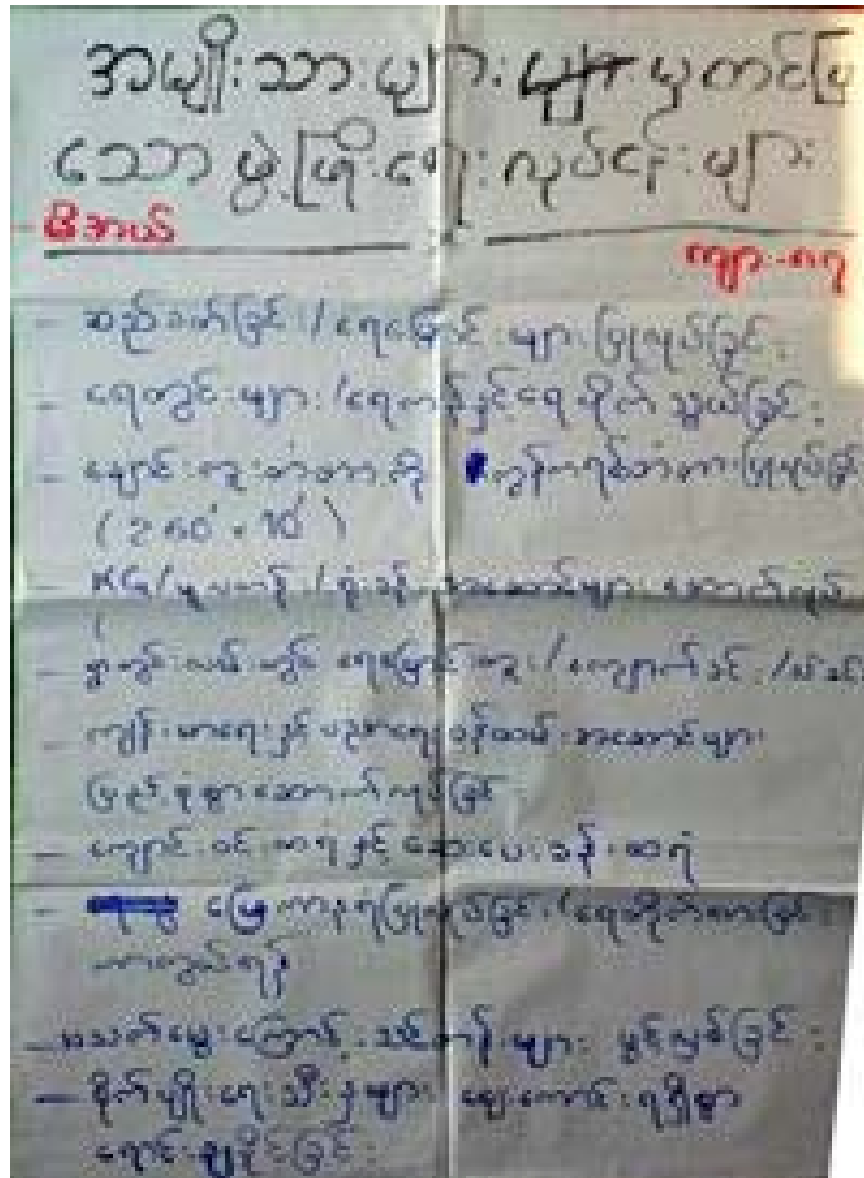 အမျိုးသားများ မှတင်ပြ
သော ဖွံ့ဖြိုးရေးလုပ်ငန်းများ
ကျား - ၈၇
- ဆည်ဖက်ခြင်း / ရေမြောင်းများပြုလုပ်ခြင်း
- ရေတွင်းများ / ရေကန်နှင့်ရေပိုက် သွယ်ခြင်း
- ချောင်းကူးတံတားကို ကွန်ကရစ်တံတားပြုလုပ်ခြင်း
(260' × 10')
- KG / မူလတန်း / ရုံးခန်း အဆောင်များ ဆောက်လုပ်
- ရွာတွင်းလမ်းတွင် ရေမြောင်းကူး / ကျောက်ခင်း /
- ကျန်းမာရေးနှင့်ပညာရေးဝန်ထမ်းအဆောင်များ
ပြည့်စုံစွာဆောက်လုပ်ခြင်း
- ကျောင်းဝင်းထရံနှင့် ဆေးပေးခန်းထရံ
- မြေကာနံရံပြုလုပ်ခြင်း / ရေတိုက်စားခြင်း
ကာကွယ်ရန်
- အသက်မွေးကြောင်းသင်တန်းများ ဖွင့်လှစ်ခြင်း
- စိုက်ပျိုးရေးသီးနှံများ ဈေးကောင်းရရှိစွာ
ရောင်းချနိုင်ခြင်း